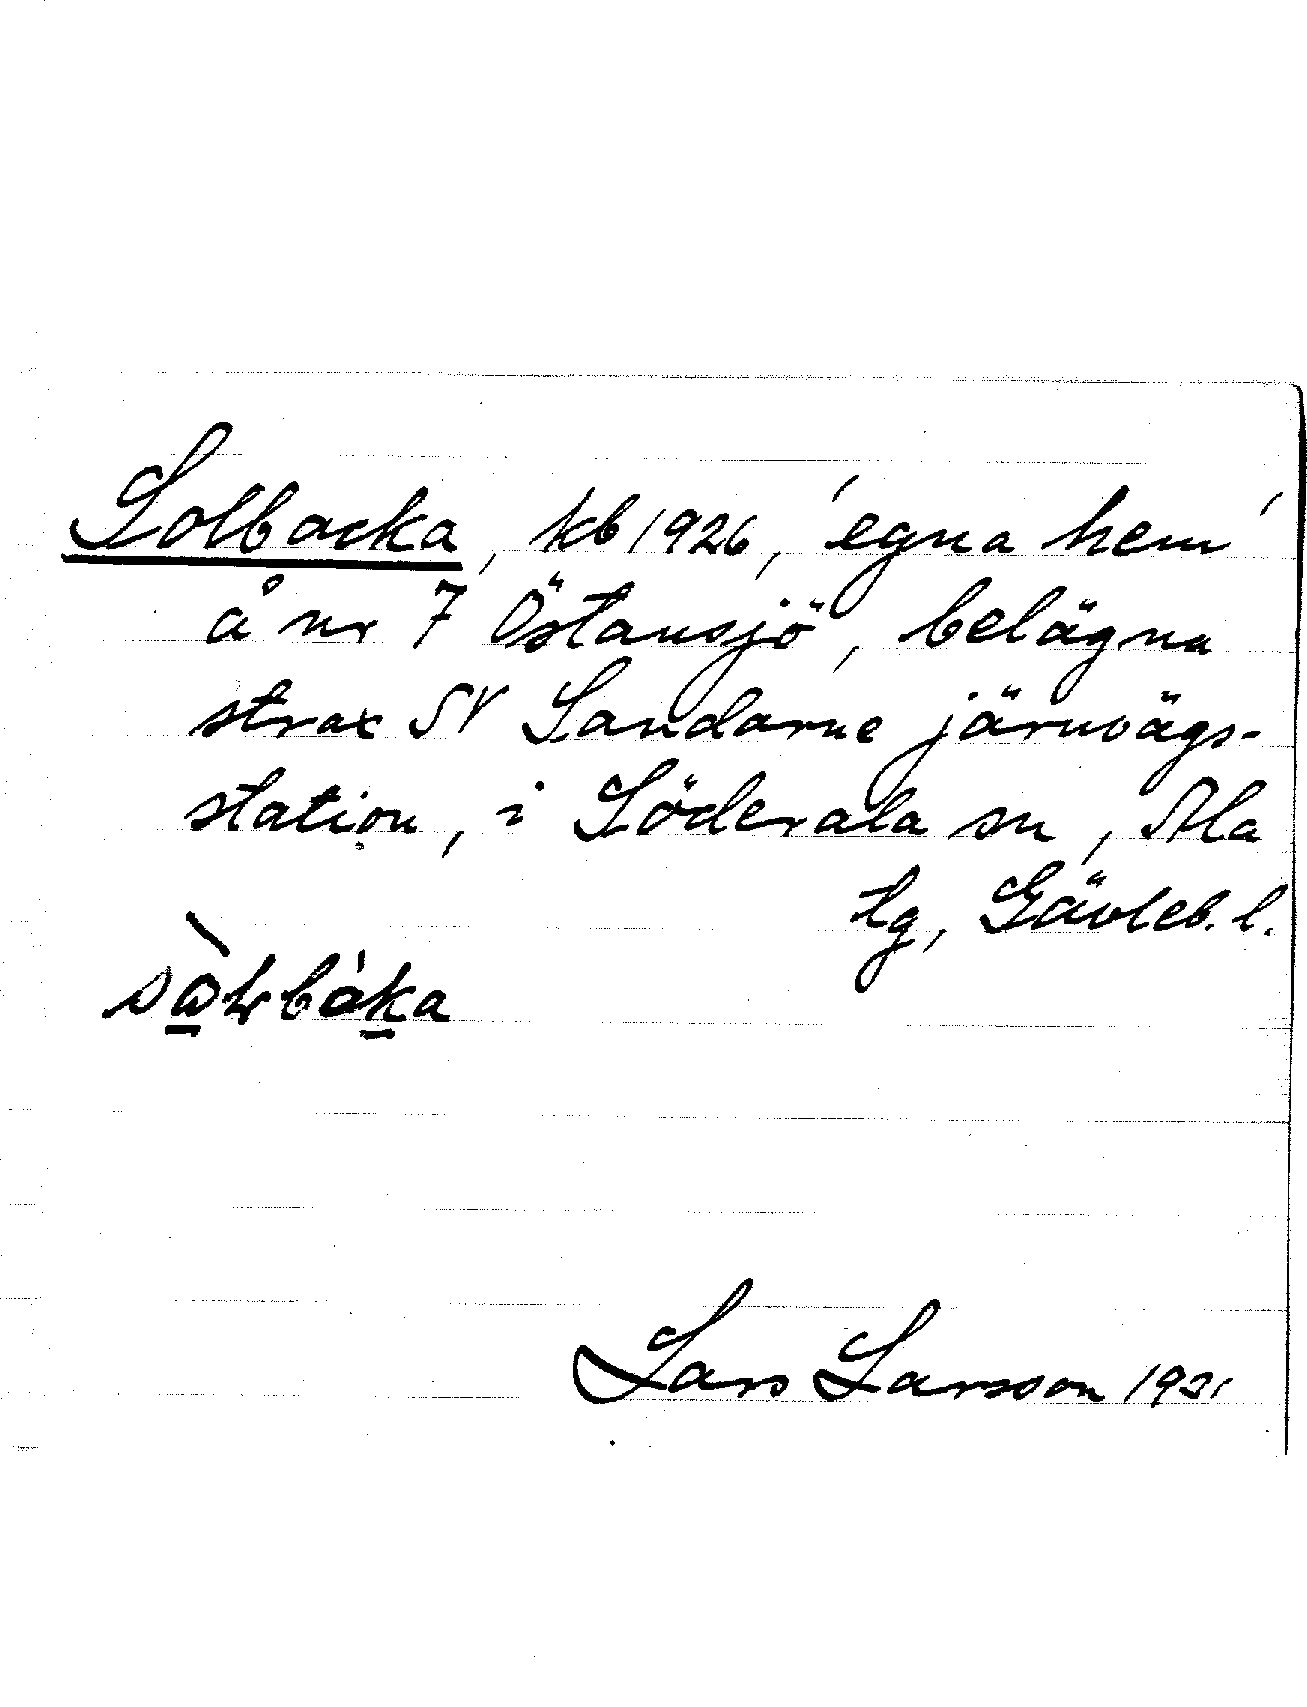 Solbacka, kb 1926, 'egna hem'
å nr 7 Östansjö, belägna
strax SV Sandarne järnvägs-
station, i Söderala sn, Ala
tg, Gävleb. l.
Lars Larsson 1931